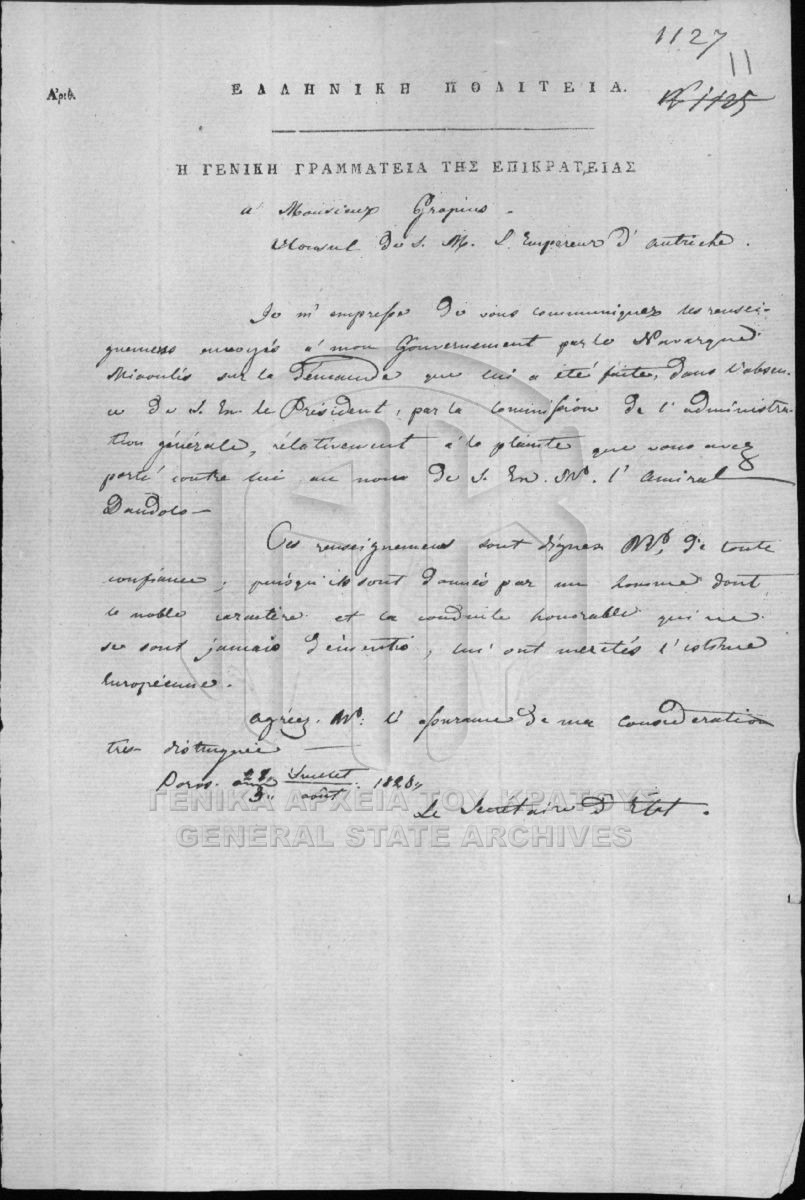 1127
11
Αριθ.
ΕΛΛΗΝΙΚΗ ΠΟΛΙΤΕΙΑ.
N° 1125
Η ΓΕΝΙΚΗ ΓΡΑΜΜΑΤΕΙΑ ΤΗΣ ΕΠΙΚΡΑΤΕΙΑΣ
a' Monsieur Gropius.
Consul de S. M. L'Empereur d'autriche.
Je m'empresse de vous communiquer les rensei-
gnemens envoyés a' mon Gouvernement par le Navarque
Miaoulis sur la demande que lui a été faite, dans l'absen-
ce de S. Ex. le Président, par la commission de l'administra-
tion générale, rélativement a la plainte que vous avez
porté contre lui au nom de S. Ex. Mr. l'amiral
Dandolo —
Ces renseignemens sont dignes Mr. de toute
confiance, puisqu'ils sont donnés par un homme dont
le noble caractère et la conduite honorable qui ne
se sont jamais dementis, lui ont merités l'estime
Européenne.
agréez Mr. l'assurance de ma consideration
tres distinguée —
Poros 22, Juillet 1828,,
3,, août
Le Secretaire d'Etat.
ΓΕΝΙΚΑ ΑΡΧΕΙΑ ΤΟΥ ΚΡΑΤΟΥΣ
GENERAL STATE ARCHIVES